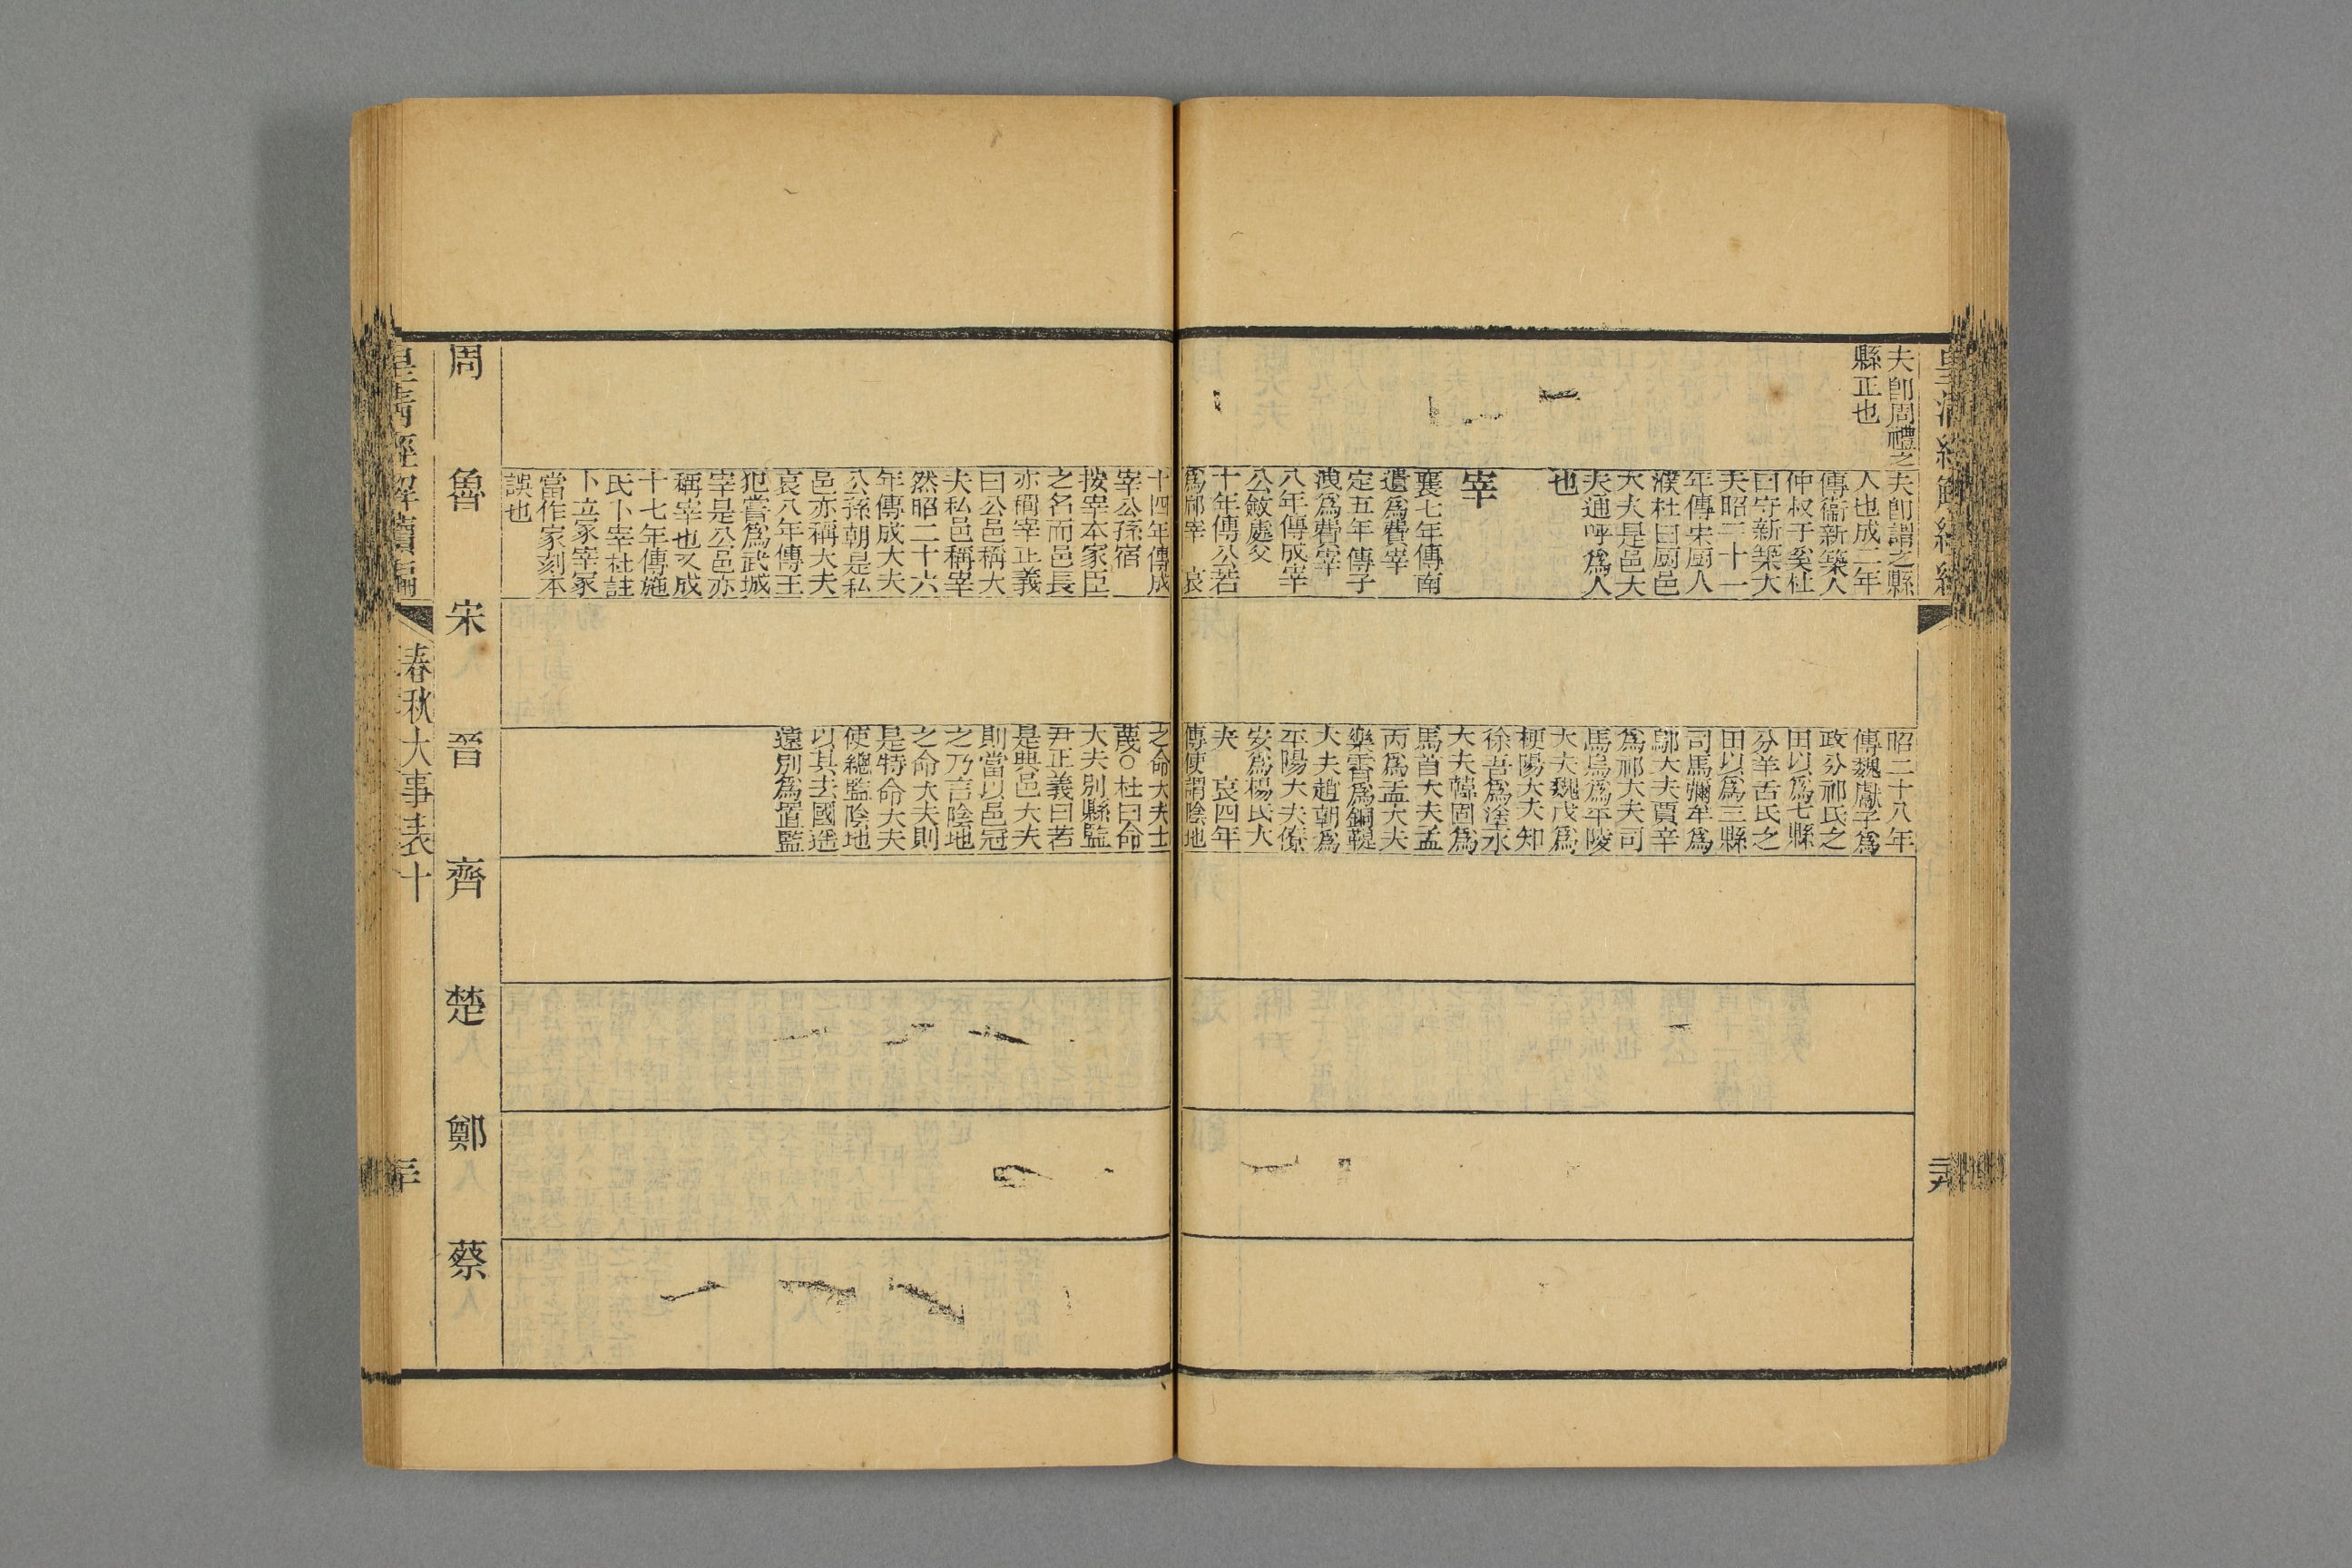 夫卽周禮之
縣正也
夫卽謂之縣
人也成二年
傳衞新築人
仲叔于奚杜
曰守新築大
夫昭二十一
年傳宋廚人
濮杜曰廚邑
大夫是邑大
夫通呼爲人
也
宰
襄七年傳南
遺爲費宰
定五年傳子
洩爲費宰
八年傳成宰
公斂處父
十年傳公若
爲郈宰 哀
昭二十八年
傳魏獻子爲
政分祁氏之
田以爲七縣
分羊舌氏之
田以爲三縣
司馬彌牟爲
鄔大夫賈辛
爲祁大夫司
馬烏爲平陵
大夫魏戊爲
梗陽大夫知
徐吾爲塗水
大夫韓固爲
馬首大夫孟
丙爲盂大夫
樂霄爲銅鞮
大夫趙朝爲
平陽大夫僚
安爲楊氏大
夫 哀四年
傳使謂陰地
十四年傳成
宰公孫宿
按宰本家臣
之名而邑長
亦稱宰正義
曰公邑稱大
夫私邑稱宰
然昭二十六
年傳成大夫
公孫朝是私
邑亦稱大夫
哀八年傳王
犯嘗爲武城
宰是公邑亦
稱宰也又成
十七年傳施
氏卜宰杜註
卜立家宰冢
當作家刻本
誤也
之命大夫士
蔑○杜曰命
大夫別縣監
尹正義曰若
是典邑大夫
則當以邑冠
之乃言陰地
之命大夫則
是特命大夫
使總監陰地
以其去國遥
遠別爲置監
周
魯
宋
晉
齊
楚
鄭
蔡
皇清經解續編
春秋大事表十